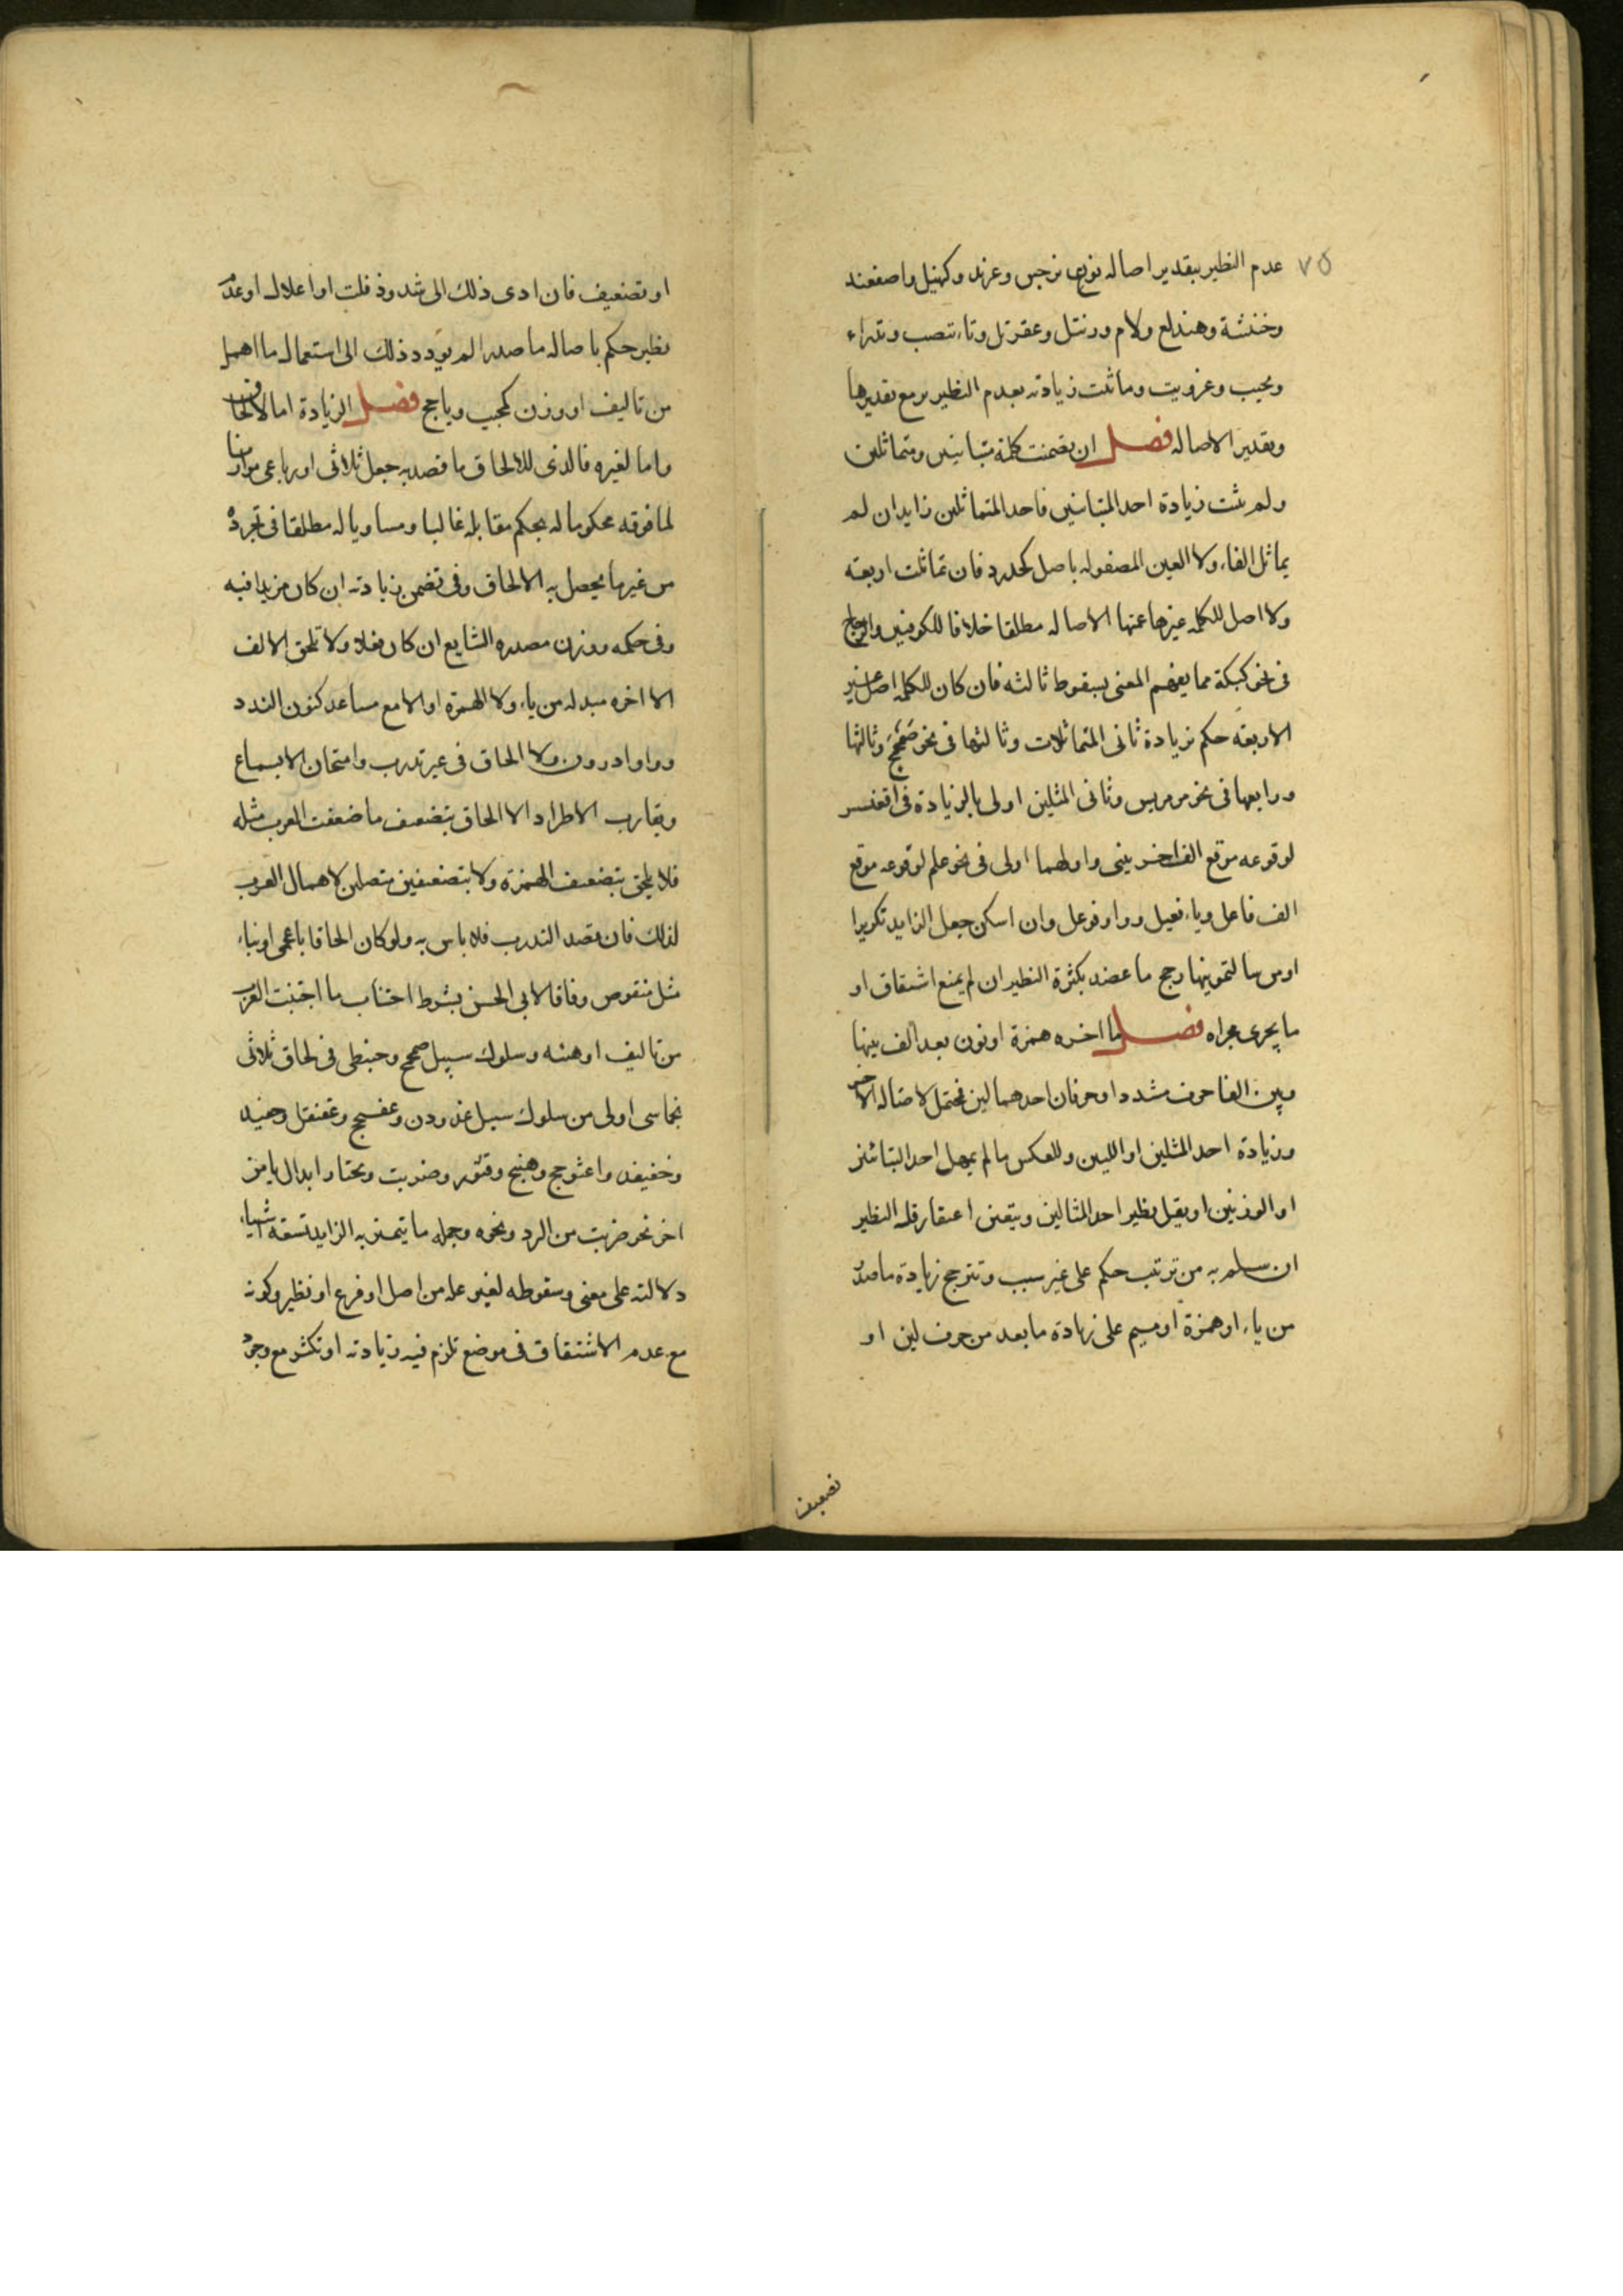 ٧٥ عدم النظير بتقدير اصاله نونى نرجس وعرند وكهنبل واصفعند
وخنثبة وهندلع ولام ورنتل وعقرتل وتاء تنصب وتدراء
ونجيب وعزويت وما ثبت زيادته بعدم النظير مع تقديرها
وتقدير الاصاله فصل ان تضمنت كلمة متباينين ومتماثلين
ولم يثبت زيادة احد المتباينين فاحد المتماثلين زايد ان لم
يماثل الفاء ولا العين المفصوله باصل كحدرد فان تماثلت اربعة
ولا اصل للكلمه غيرها عمتها الاصاله مطلقا خلافا للكوفيين والزجاج
فى نحو كبكبة مما يفهم المعنى بسقوط ثالثه فان كان للكلمه اصل غير
الاربعة حكم بزيادة ثانى المتماثلات وثالثها فى نحو صمحمح وثالثها
ورابعها فى نحو مرمريس وثانى المثلين اولى بالزيادة فى اقعنسس
لوقوعه موقع الف احرنبى واولهما اولى فى نحو علم لوقوعه موقع
الف فاعل وياء فيعل وواو فوعل وان امكن جعل الزايد تكريرا
او من سالتمونيها رجح ما عضد بكثرة النظير ان لم يمنع اشتقاق او
ما يجرى مجراه فصل ما اخره همزة او نون بعد الف بينها
وبين الفا حرف مشدد او حرفان احدهما لين محتمل لاصاله الاخر
وزيادة احد المثلين او اللين وللعكس ما لم يهمل احد البنائين
او الوزنين او يقل نظير احد المثالين ويتعين اعتبار قلة النظير
ان سلم به من ترتب حكم على غير سبب وتترجح زيادة ما صدر
من ياء او همزة او ميم على زيادة ما بعد من حرف لين او
تضعيف
او تضعيف فان ادى ذلك الى شذوذ فك او اعلال او عدم
نظير حكم باصاله ما صدر ما لم يؤد ذلك الى استعمال ما اهمل
من تاليف او وزن كمحبب وياجج فصل الزيادة اما لالحاق
واما لغيره فالذى للالحاق ما قصد به جعل ثلاثى او رباعى موازنا
لما فوقه محكوما له بحكم مقابله غالبا ومساويا له مطلقا فى تجرده
من غير ما يحصل به الالحاق وفى تضمن زيادته ان كان مزيدا فيه
وفى حكمه ووزن مصدره الشايع ان كان فعلا ولا تلحق الالف
الا اخره مبدله من ياء ولا الهمزة اولا الا مع مساعد كنون الندد
وواو ادرون ولا الحاق فى غير تدرب وامتحان الا بسماع
ويقارب الاطراد الا الحاق بتضعيف ما ضعفت العرب مثله
فلا يلحق بتضعيف الهمزة ولا بتضعيفين متصلين لاهمال العرب
لذلك فان قصد التدرب فلا باس به ولو كان الحاقا باعجمى او بناء
مثل منقوص وفاقا لابى الحسن بشرط اجتناب ما اجتنبت العرب
من تاليف او هيئه وسلوك سبيل صمحمح وحبنطى فى الحاق ثلاثى
بخماسى اولى من سلوك سبيل غدودن وعفجج وعقنقل وحفيدد
وخفيفد واعثوجج وهبيخ وقنور وضربيت ويختار ابدال ياء من
اخر نحو ضربت من الرد ونحوه وجمله ما يتميز به الزايد تسعة اشياء
دلالته على معنى وسقوطه لغير علة من اصل او فرع او نظير وكونه
مع عدم الاشتقاق فى موضع تلزم فيه زيادته او تكثر مع وجود